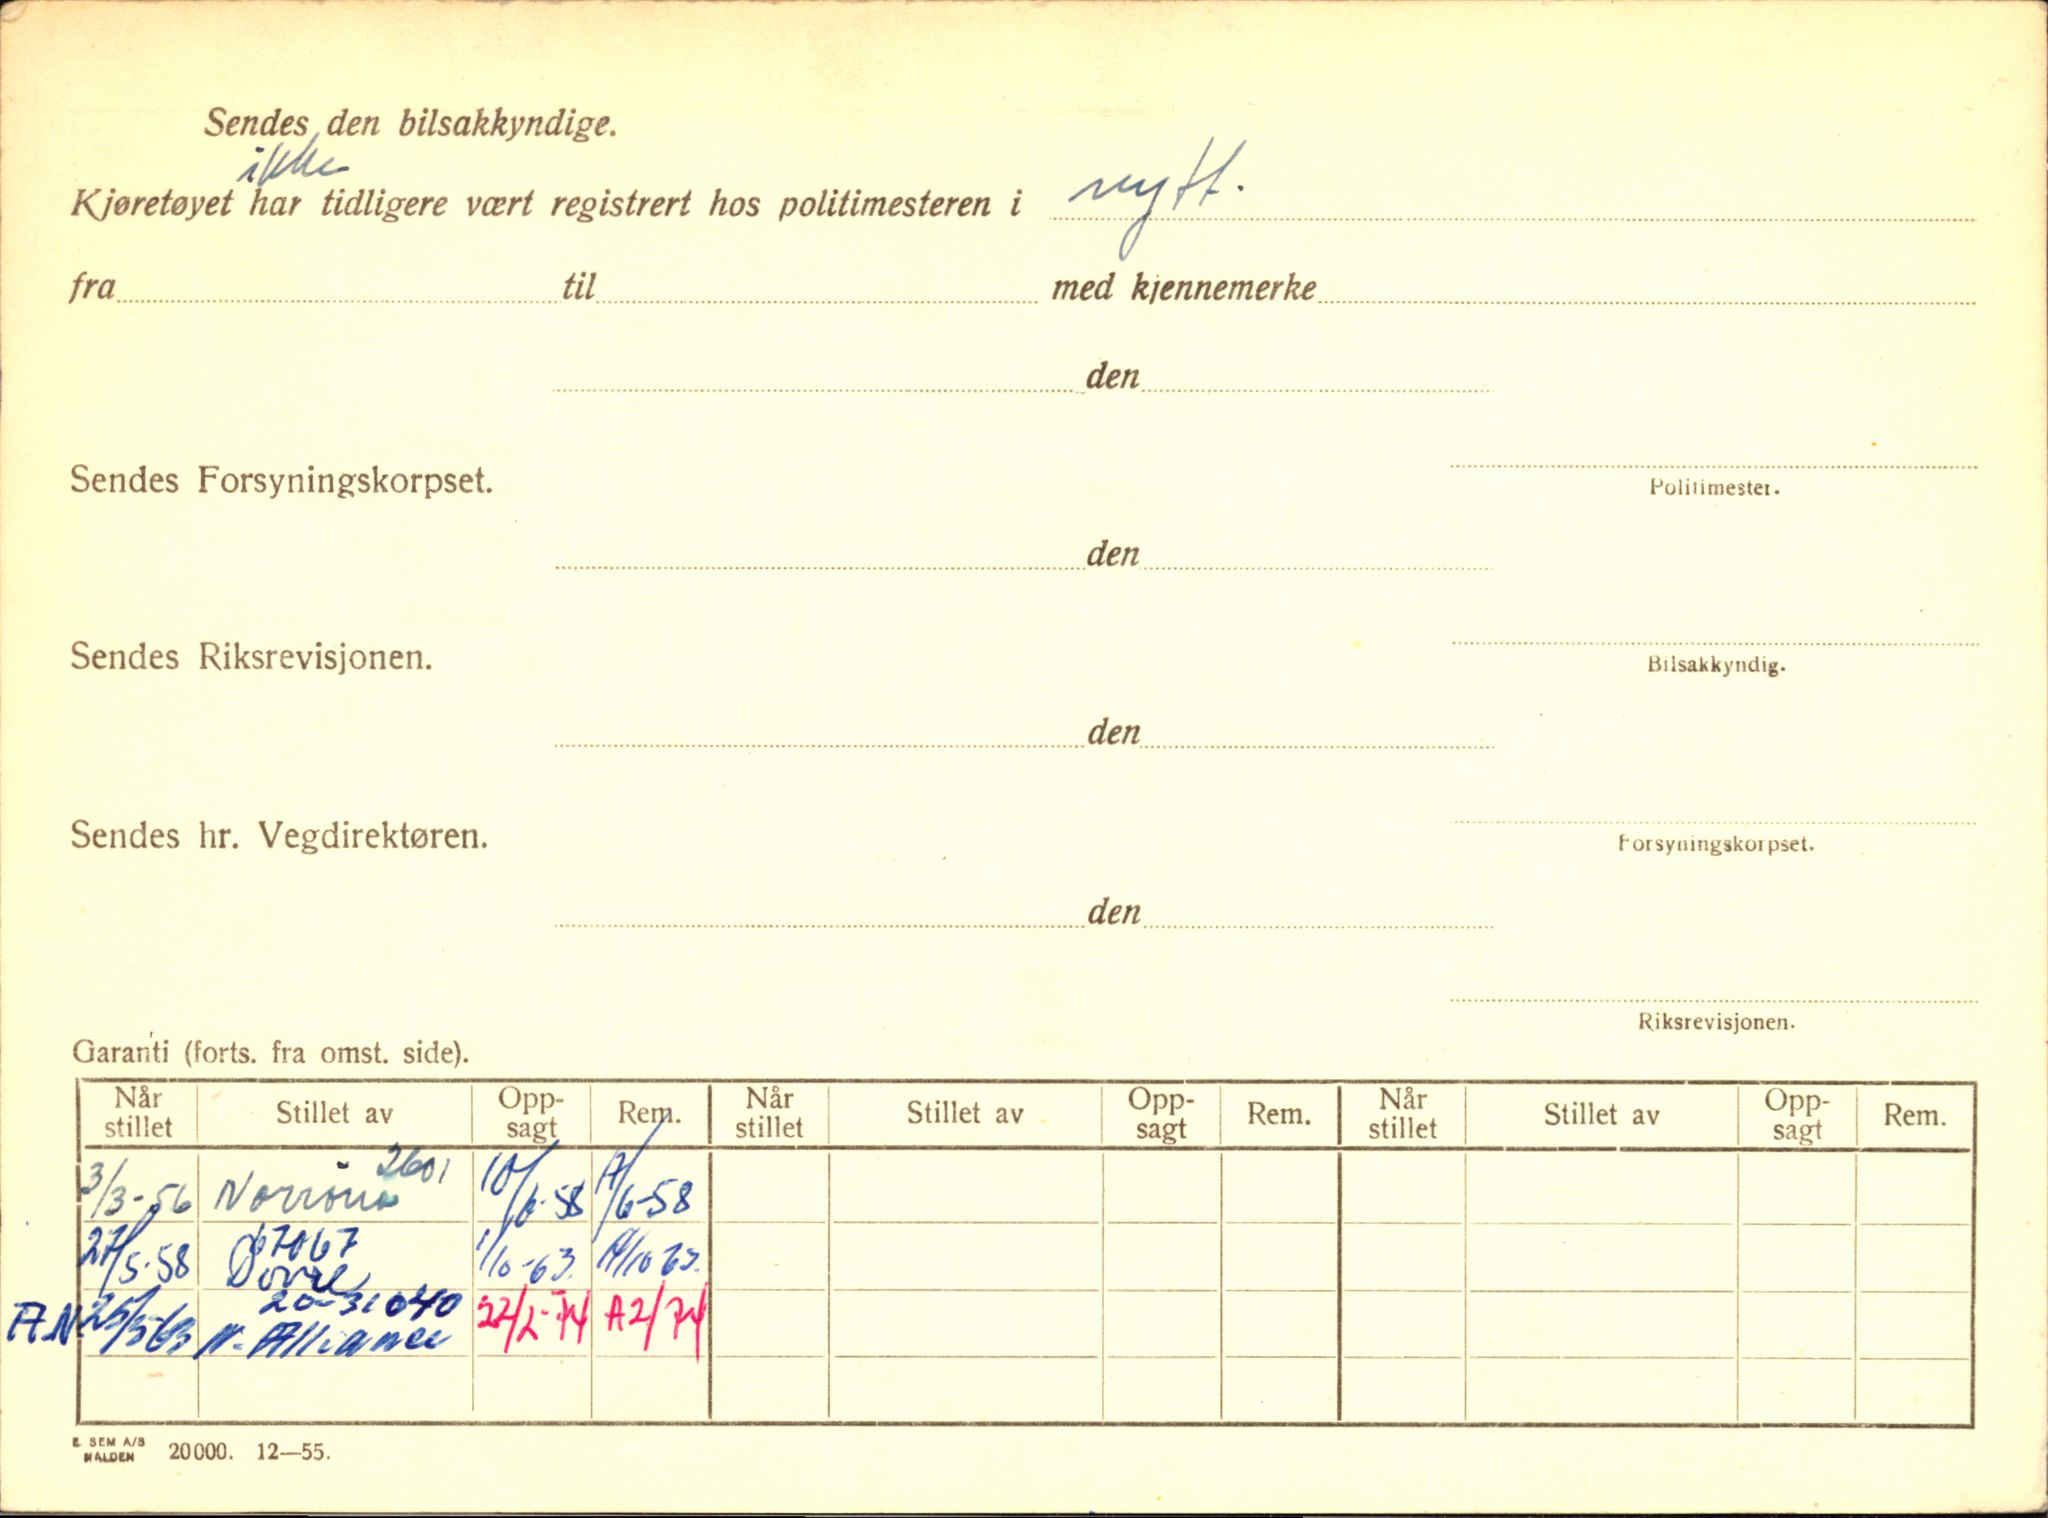 Sendes den bilsakkyndige.
ikke
Kjøretøyet har tidligere vært registrert hos politimesteren i nytt.
fra til med kjennemerke
den
Politimester.
Sendes Forsyningskorpset.
den
Bilsakkyndig.
Sendes Riksrevisjonen.
den
Forsyningskorpset.
Sendes hr. Vegdirektøren.
den
Riksrevisjonen.
Garanti (forts. fra omst. side).
Når stillet Stillet av Opp-sagt Rem. Når stillet Stillet av Opp-sagt Rem. Når stillet Stillet av Opp-sagt Rem.
2601
3/3-56 Norrøna 10/6-58 A/6-58
67067
27/5-58 Dovre 1/10-63. A/10 63.
20-31040
A.N. 25/5 63 N. Alliance 22/2-74 A2/74
E. SEM A/S
HALDEN 20000. 12—55.